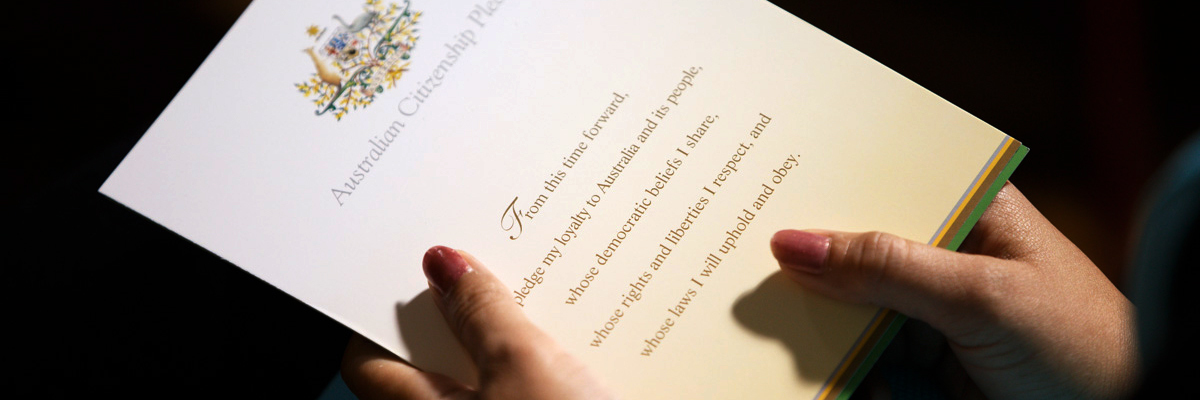 Australian Citizenship
From this time forward,
pledge my loyalty to Australia and its people,
whose democratic beliefs I share,
whose rights and liberties I respect, and
whose laws I will uphold and obey.